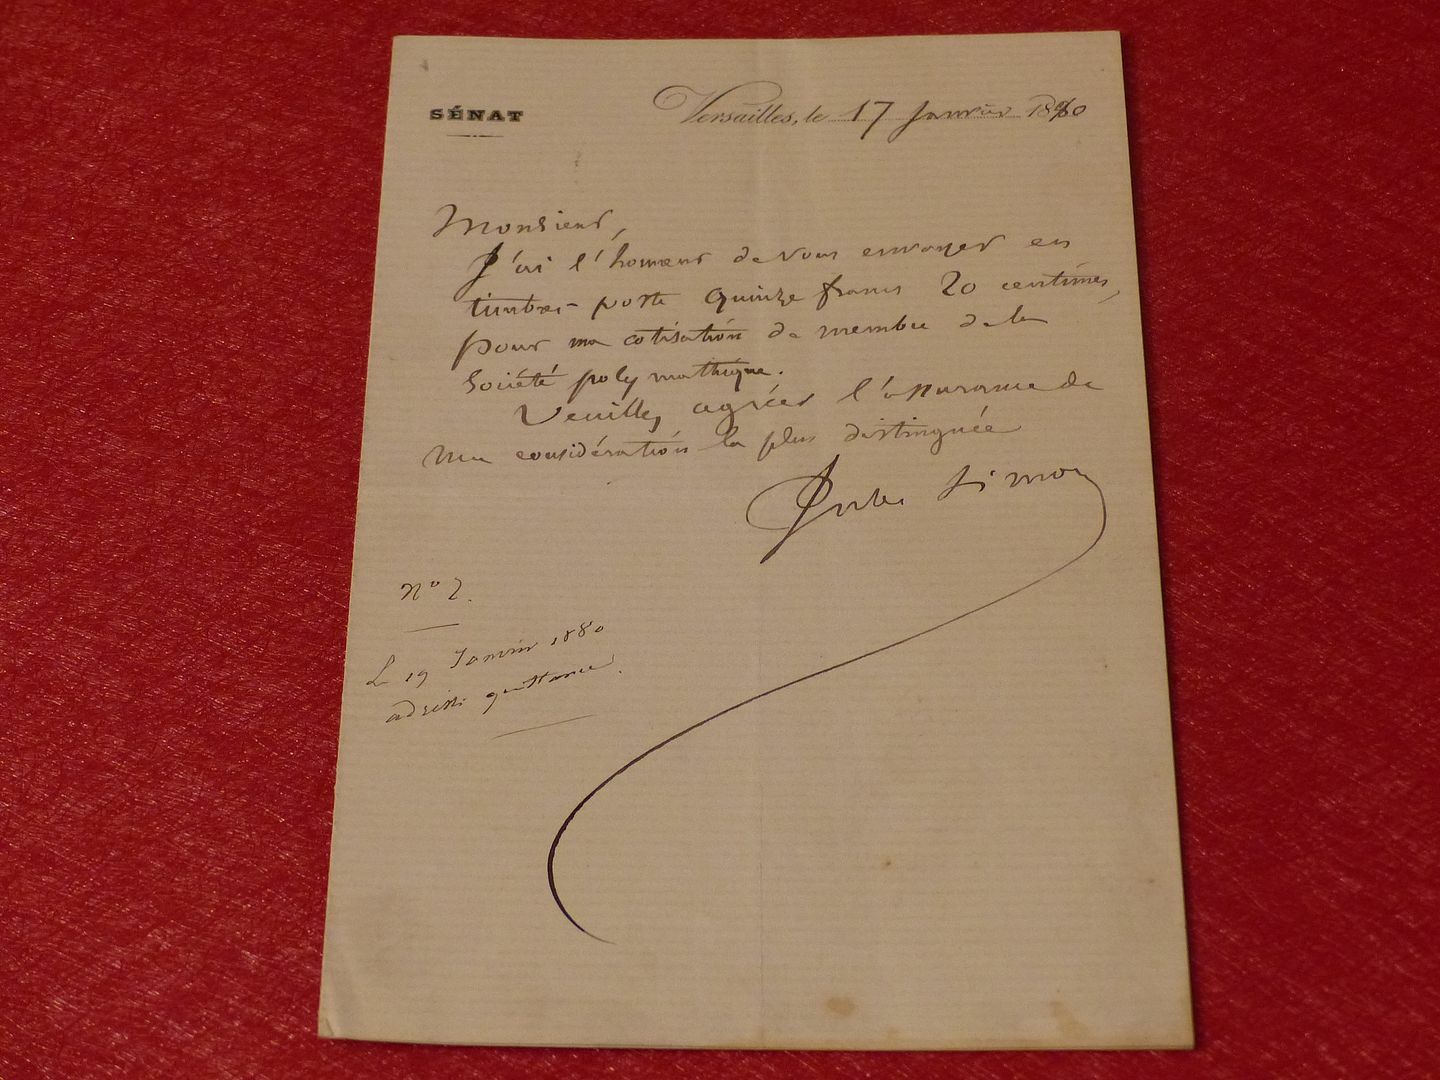 SÉNAT
Versailles, le 17 Janvier 1880
Monsieur,
J'ai l'honneur de vous envoyer en
timbres-poste quinze francs 20 centimes,
pour ma cotisation de membre de la
Société polymathique.
Veuillez agréer l'assurance de
ma considération la plus distinguée
Jules Simon
No 2.
Le 19 Janvier 1880
adressé quittance.